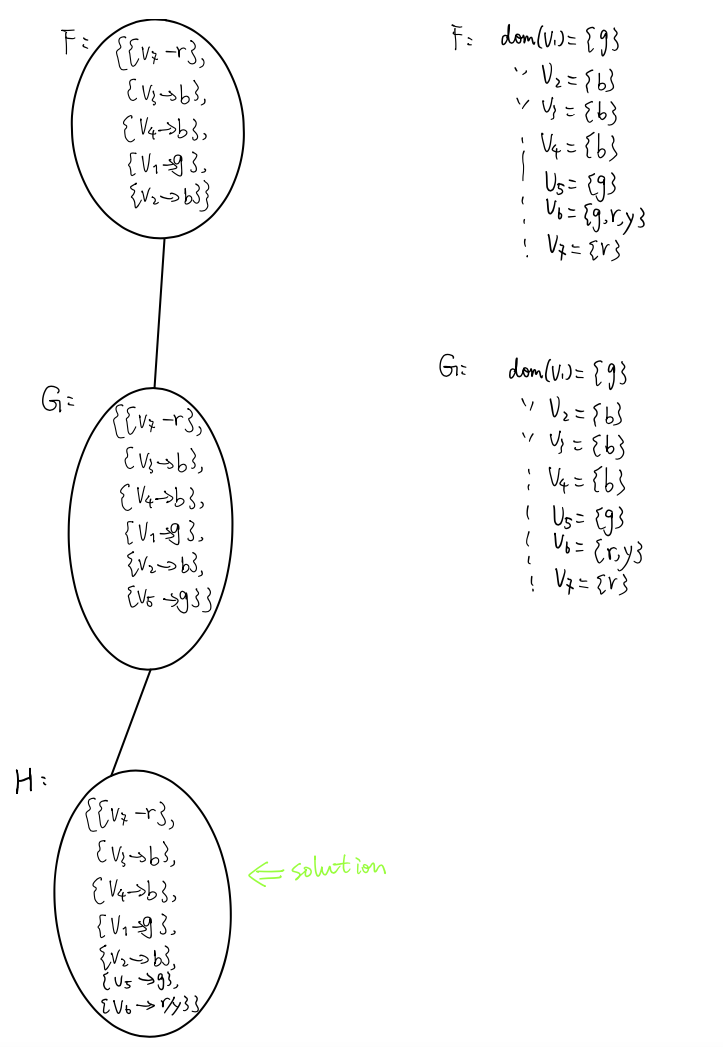 F:
{{V₇ -r},
{V₃→b},
{V₄→b},
{V₁→g},
{V₂→b}}
F: dom(V₁) = {g}
'' V₂ = {b}
'' V₃ = {b}
V₄ = {b}
V₅ = {g}
V₆ = {g,r,y}
V₇ = {r}
G:
{{V₇ -r},
{V₃→b},
{V₄→b},
{V₁→g},
{V₂→b},
{V₅→g}}
G: dom(V₁) = {g}
'' V₂ = {b}
'' V₃ = {b}
V₄ = {b}
V₅ = {g}
V₆ = {r,y}
V₇ = {r}
H:
{{V₇ -r},
{V₃→b},
{V₄→b},
{V₁→g},
{V₂→b},
{V₅→g},
{V₆→r/y}}
⇐ solution